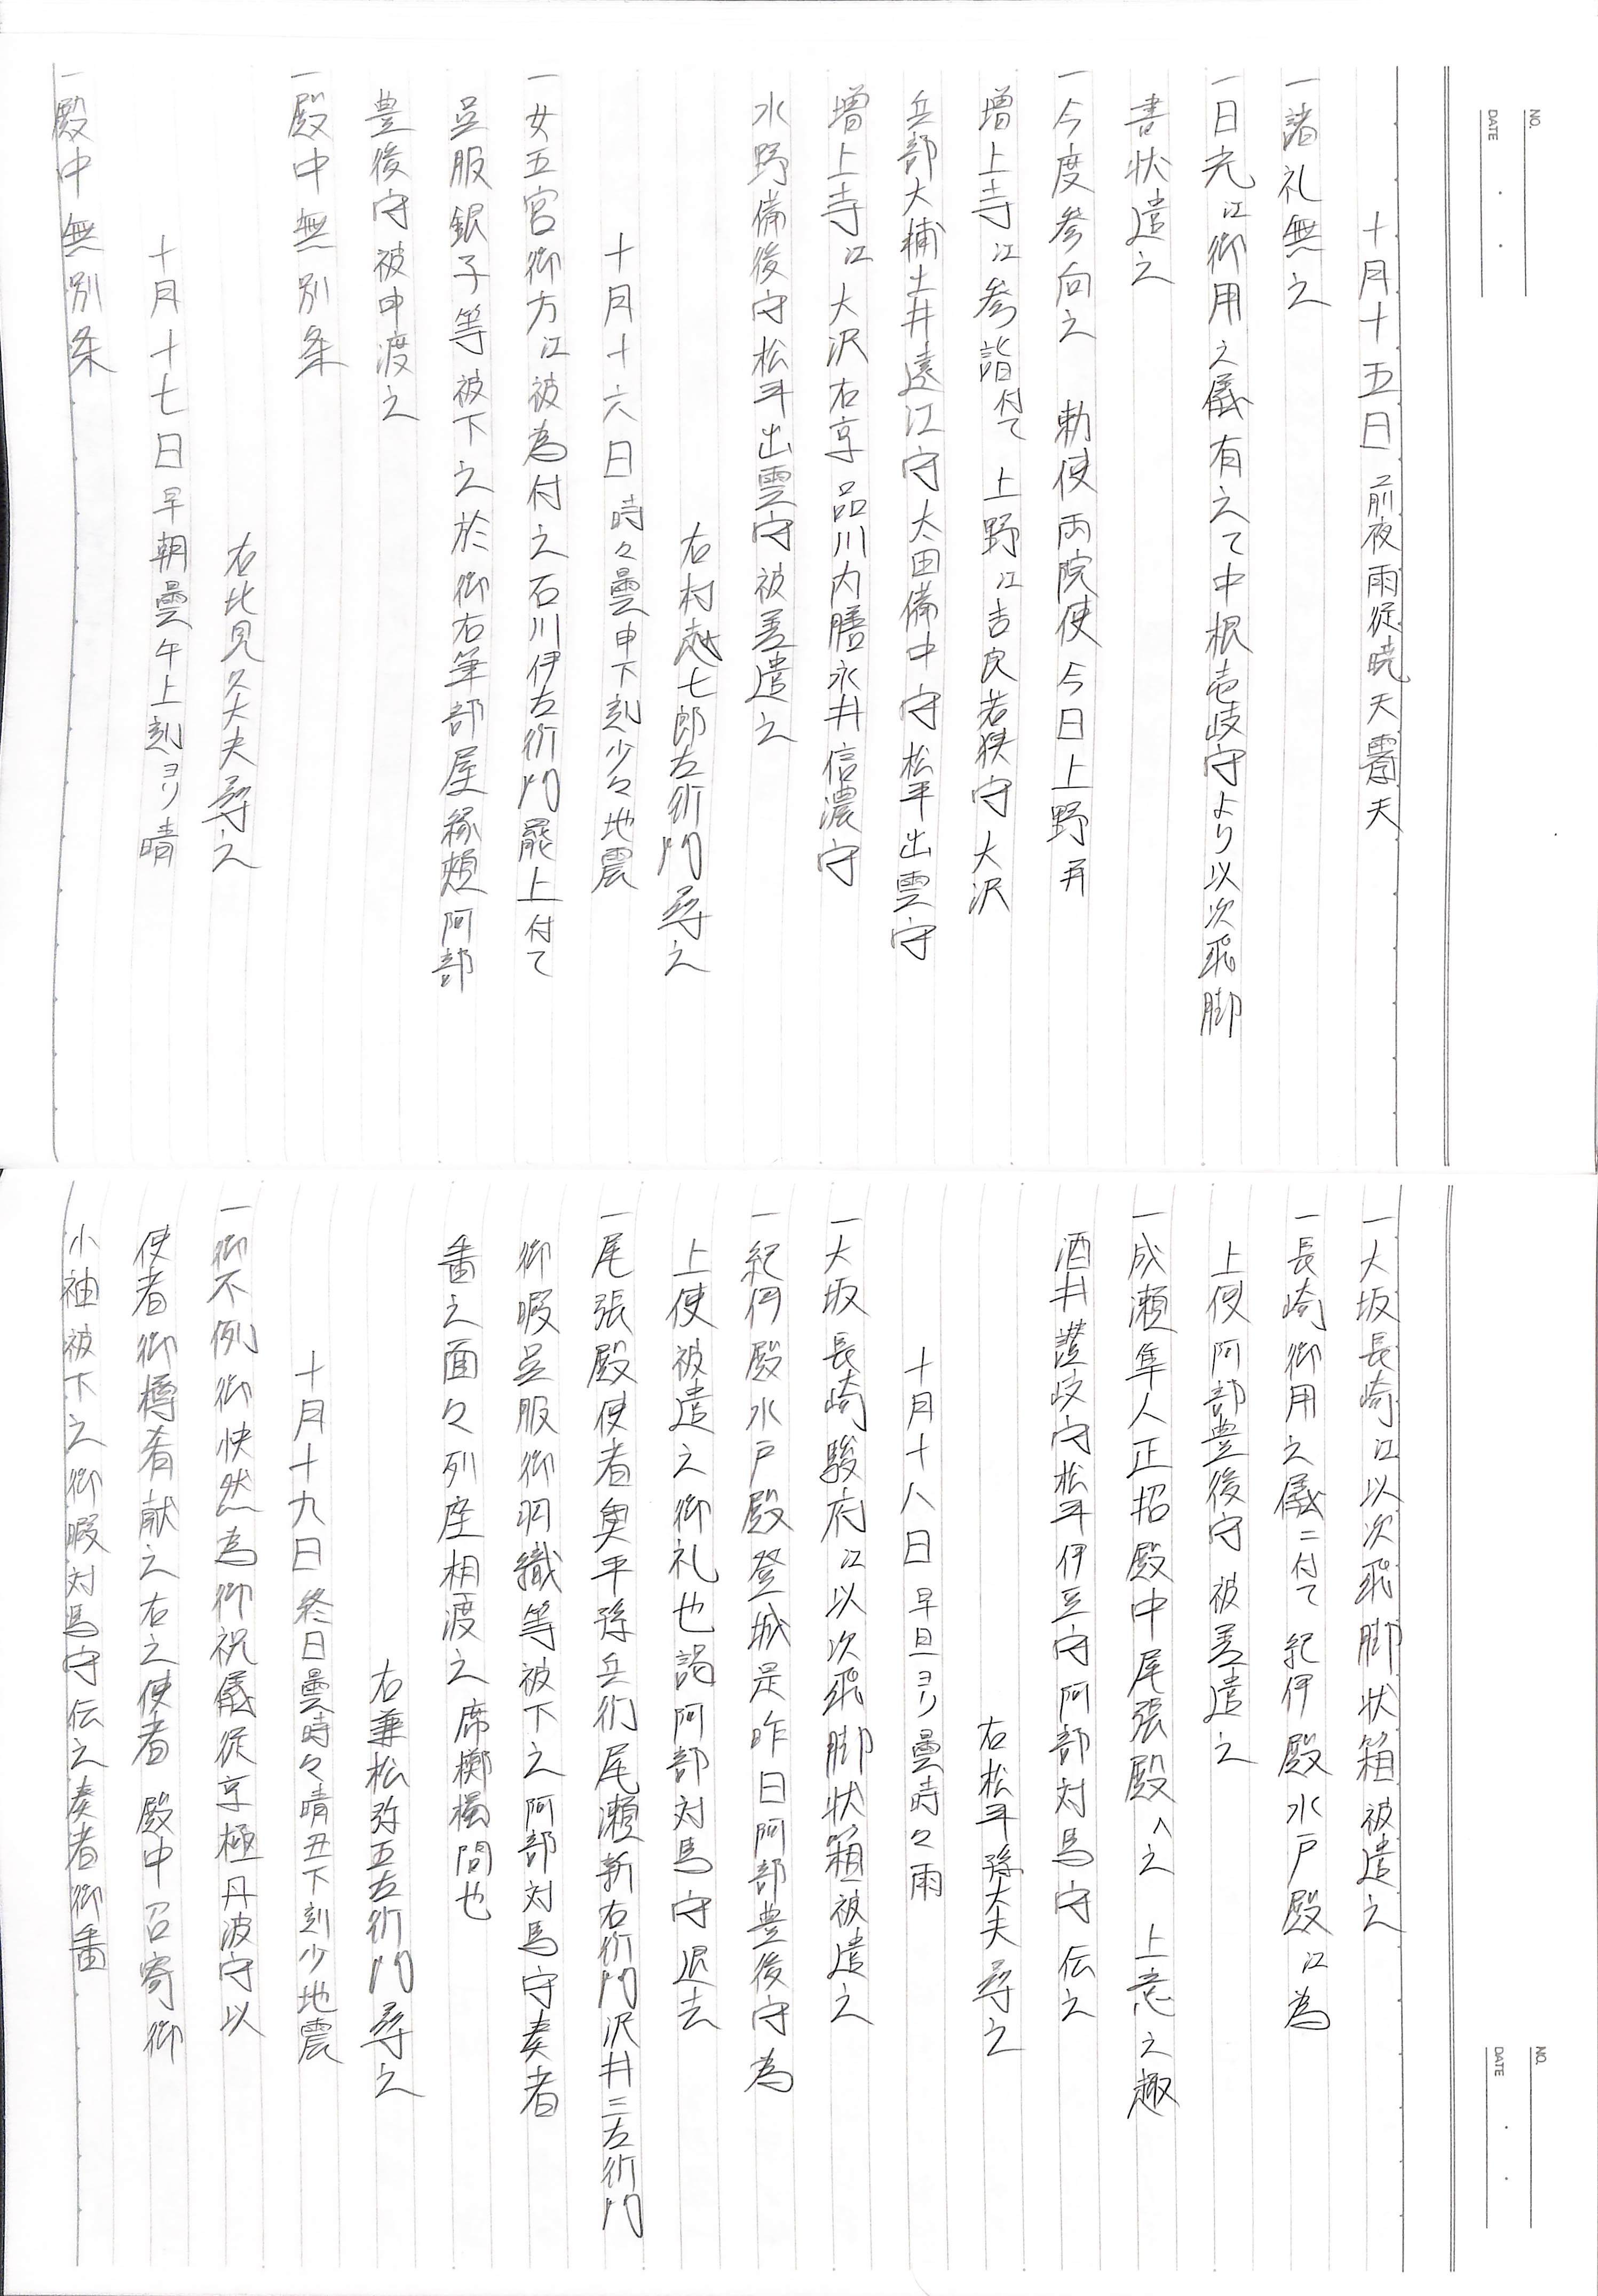 NO.
DATE
十月十五日 前夜雨従暁天霽天
一諸礼無之
一日光江御用之儀有之て中根壱岐守より以次飛脚
書状遣之
一今度参向之 勅使両院使今日上野并
増上寺江参詣付て 上野江吉良若狭守大沢
兵部大輔土井遠江守太田備中守松平出雲守
増上寺江大沢右京品川内膳永井信濃守
水野備後守松平出雲守被差遣之
右村越七郎左衛門尋之
十月十六日 時々曇申下刻少々地震
一女五宮御方江被為付之石川伊左衛門罷上付て
呉服銀子等被下之於御右筆部屋縁頬阿部
豊後守被申渡之
一殿中無別条
右比見久大夫尋之
十月十七日 早朝曇午上刻ヨリ晴
一殿中無別条
NO.
DATE
一大坂長崎江以次飛脚状箱被遣之
一長崎御用之儀ニ付て紀伊殿水戸殿江為
上使阿部豊後守被差遣之
一成瀬隼人正招殿中尾張殿へ之 上意之趣
酒井讃岐守松平伊豆守阿部対馬守伝之
右松平孫大夫尋之
十月十八日 早旦ヨリ曇時々雨
一大坂長崎駿府江以次飛脚状箱被遣之
一紀伊殿水戸殿登城是昨日阿部豊後守為
上使被遣之御礼也謁阿部対馬守退去
一尾張殿使者奥平孫兵衛尾瀬新右衛門沢井三左衛門
御暇呉服御羽織等被下之阿部対馬守奏者
番之面々列座相渡之席檳榔間也
右兼松弥五左衛門尋之
十月十九日 終日曇時々晴丑下刻少地震
一御不例御快然為御祝儀従京極丹波守以
使者御樽肴献之右之使者 殿中召寄御
小袖被下之御暇対馬守伝之奏者御番